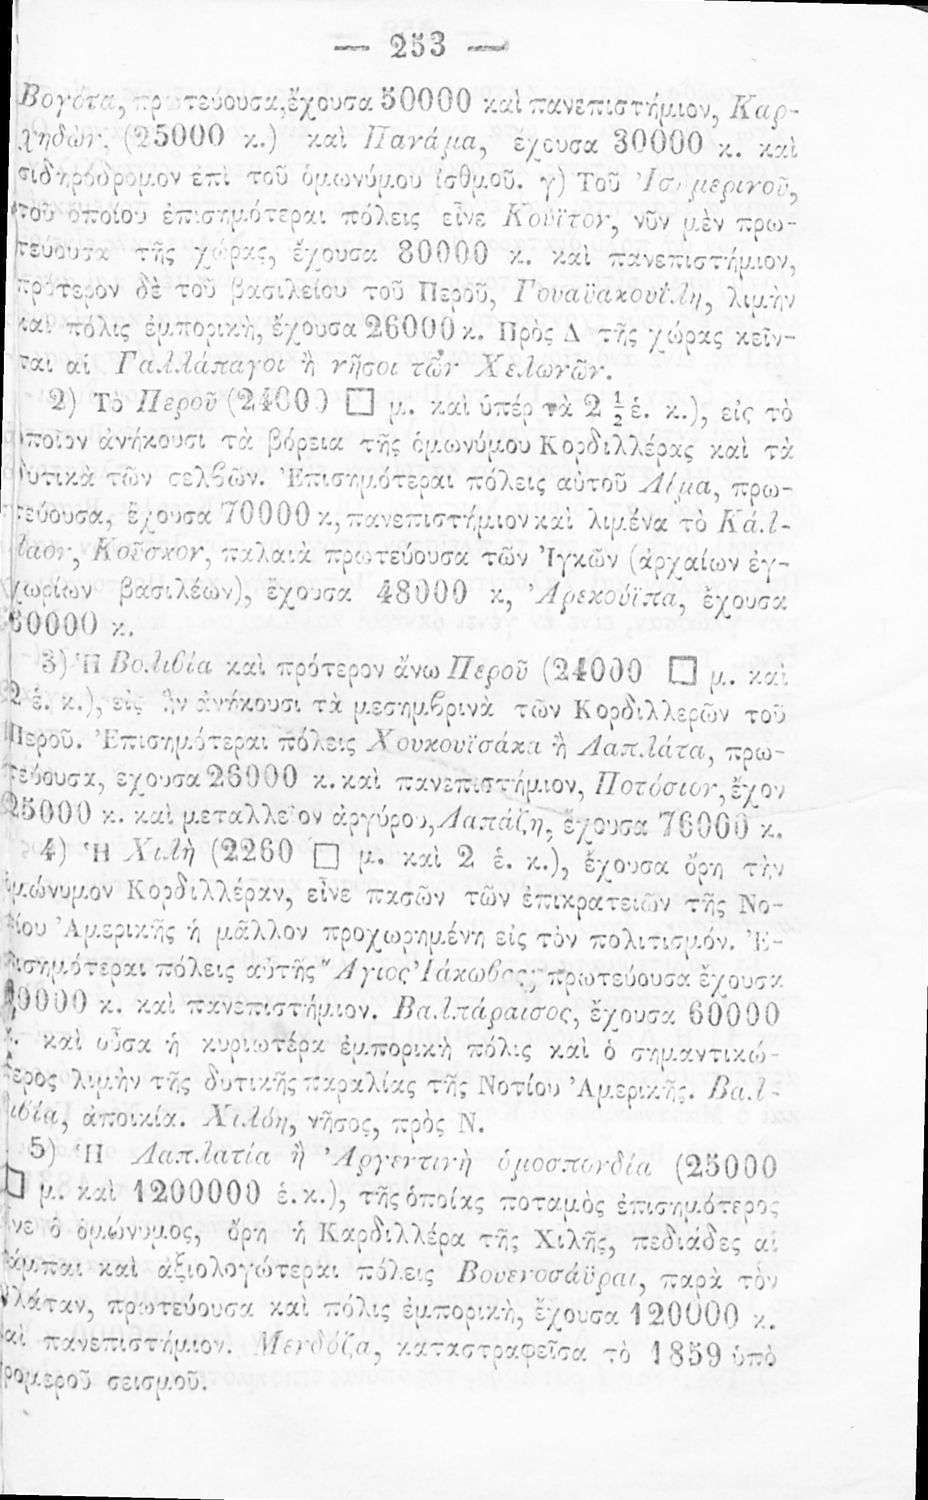 — 253 —
Βογότα, πρωτεύουσα, ἔχουσα 50000 καὶ πανεπιστήμιον, Καρ-
χηδών, (25000 κ.) καὶ Παναμα, ἔχουσα 30000 κ. καὶ
σιδηρόδρομον ἐπὶ τοῦ ὁμωνύμου ἰσθμοῦ. γ) Τοῦ Ἰσημερινοῦ,
τοῦ ὁποίου ἐπισημότεραι πόλεις εἶνε Κουΐτον, νῦν μὲν πρω-
τεύουσα τῆς χώρας, ἔχουσα 80000 κ. καὶ πανεπιστήμιον,
πρότερον δὲ τοῦ βασιλείου τοῦ Περοῦ, Γουαϋακουΐλη, λιμὴν
καὶ πόλις ἐμπορικὴ, ἔχουσα 26000 κ. Πρὸς Δ τῆς χώρας κεῖν-
ται αἱ Γαλλάπαγοι ἢ νῆσοι τῶν Χελωνῶν.
2) Τὸ Περοῦ (24000 □ μ. καὶ ὑπὲρ τὰ 2 ½ ἑ. κ.), εἰς τὸ
ὁποῖον ἀνήκουσι τὰ βόρεια τῆς ὁμωνύμου Κορδιλλέρας καὶ τὰ
δυτικὰ τῶν σελβῶν. Ἐπισημότεραι πόλεις αὐτοῦ Λίμα, πρω-
τεύουσα, ἔχουσα 70000 κ, πανεπιστήμιον καὶ λιμένα τὸ Κάλ-
λαον, Κοῦσκον, παλαιὰ πρωτεύουσα τῶν Ἰγκῶν (ἀρχαίων ἐγ-
χωρίων βασιλέων), ἔχουσα 48000 κ, Ἀρεκούϊπα, ἔχουσα
60000 κ.
3) Ἡ Βολιβία καὶ πρότερον ἄνω Περοῦ (24000 □ μ. καὶ
2 ἑ. κ.), εἰς ἣν ἀνήκουσι τὰ μεσημβρινὰ τῶν Κορδιλλερῶν τοῦ
Περοῦ. Ἐπισημότεραι πόλεις Χουκουϊσάκα ἢ Λαπλάτα, πρω-
τεύουσα, ἔχουσα 26000 κ. καὶ πανεπιστήμιον, Ποτόσιον, ἔχον
25000 κ. καὶ μεταλλεῖον ἀργύρου, Λαπάζη, ἔχουσα 76000 κ.
4) Ἡ Χιλὴ (2260 □ μ. καὶ 2 ἑ. κ.), ἔχουσα ὄρη τὴν
ὁμώνυμον Κορδιλλέραν, εἶνε πασῶν τῶν ἐπικρατειῶν τῆς Νο-
τίου Ἀμερικῆς ἡ μᾶλλον προχωρημένη εἰς τὸν πολιτισμόν. Ἐ-
πισημότεραι πόλεις αὐτῆς Ἅγιος Ἰάκωβος, πρωτεύουσα ἔχουσα
κ. καὶ πανεπιστήμιον. Βαλπάραισος, ἔχουσα 60000
κ. καὶ οὖσα ἡ κυριωτέρα ἐμπορικὴ πόλις καὶ ὁ σημαντικώ-
τερος λιμὴν τῆς δυτικῆς παραλίας τῆς Νοτίου Ἀμερικῆς. Βαλ-
διβία, ἀποικία. Χιλόη, νῆσος, πρὸς Ν.
5) Ἡ Λαπλατία ἢ Ἀργεντινὴ ὁμοσπονδία (25000
□ μ. καὶ 1200000 ἑ. κ.), τῆς ὁποίας ποταμὸς ἐπισημότερος
εἶνε ὁ ὁμώνυμος, ὄρη ἡ Καρδιλλέρα τῆς Χιλῆς, πεδιάδες αἱ
πάμπαι καὶ ἀξιολογώτεραι πόλεις Βουενοσάϋραι, παρὰ τὸν
Πλάταν, πρωτεύουσα καὶ πόλις ἐμπορικὴ, ἔχουσα 120000 κ.
καὶ πανεπιστήμιον. Μενδόζα, καταστραφεῖσα τὸ 1859 ὑπὸ
τρομεροῦ σεισμοῦ.